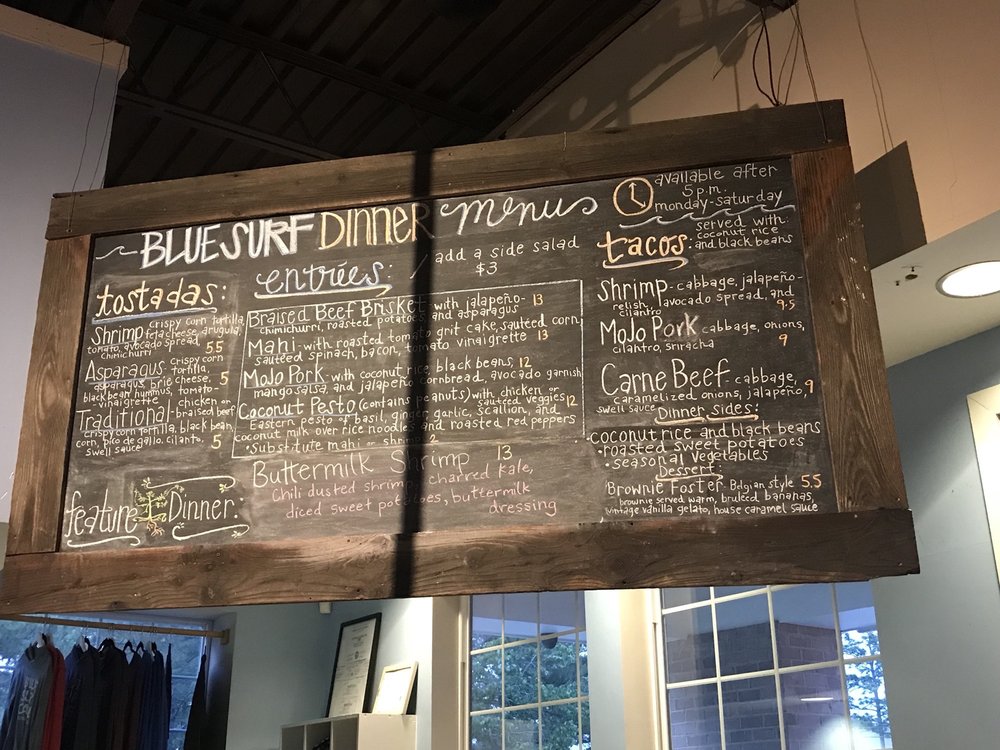 BLUE SURF DINNER menus
available after
5 p.m.
monday-saturday
tostadas:
Shrimp crispy corn tortilla,
feta cheese, arugula,
tomato, avocado spread, 5.5
chimichurri
Asparagus crispy corn
tortilla,
asparagus, brie cheese, 5
black bean hummus, tomato-
vinaigrette chicken or
Traditional-braised beef
crispy corn tortilla, black bean,
corn, pico de gallo, cilantro, 5
swell sauce
feature Dinner:
entrées:
/ add a side salad
$3
Braised Beef Brisket-with jalapeño- 13
chimichurri, roasted potatoes and asparagus
Mahi-with roasted tomato grit cake, sautéed corn,
sautéed spinach, bacon, tomato vinaigrette 13
Mojo Pork with coconut rice, black beans, 12
mango salsa, and jalapeño cornbread, avocado garnish
Coconut Pesto (contains peanuts) with chicken or
sautéed veggies 12
Eastern pesto of basil, ginger garlic, scallion, and
coconut milk over rice noodles and roasted red peppers
•Substitute mahi or shrimp 2
Buttermilk Shrimp 13
Chili dusted shrimp, charred kale,
diced sweet potatoes, buttermilk
dressing
tacos: served with
coconut rice
and black beans
Shrimp-cabbage, jalapeño-
relish, avocado spread, and
cilantro 9.5
Mojo Pork cabbage, onions,
cilantro, sriracha 9
Carne Beef-cabbage,
caramelized onions, jalapeño, 9
swell sauce
Dinner Sides:
•coconut rice and black beans
•roasted sweet potatoes
•seasonal vegetables
Dessert:
Brownie Foster Belgian style 5.5
brownie served warm, bruleed bananas,
vintage vanilla gelato, house caramel sauce